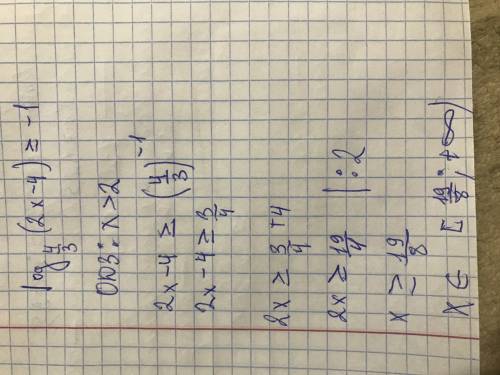 log_{4/3} (2x-4) ≥ -1
ООЗ: x>2
2x-4 ≥ (4/3)^{-1}
2x-4 ≥ 3/4
2x ≥ 3/4 +4
2x ≥ 19/4 |:2
x ≥ 19/8
x ∈ [19/8; +∞)